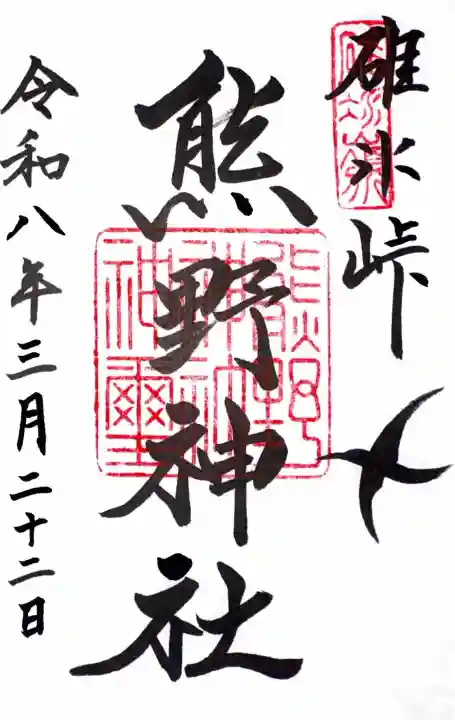 碓氷峠
熊野神社
令和八年三月二十二日